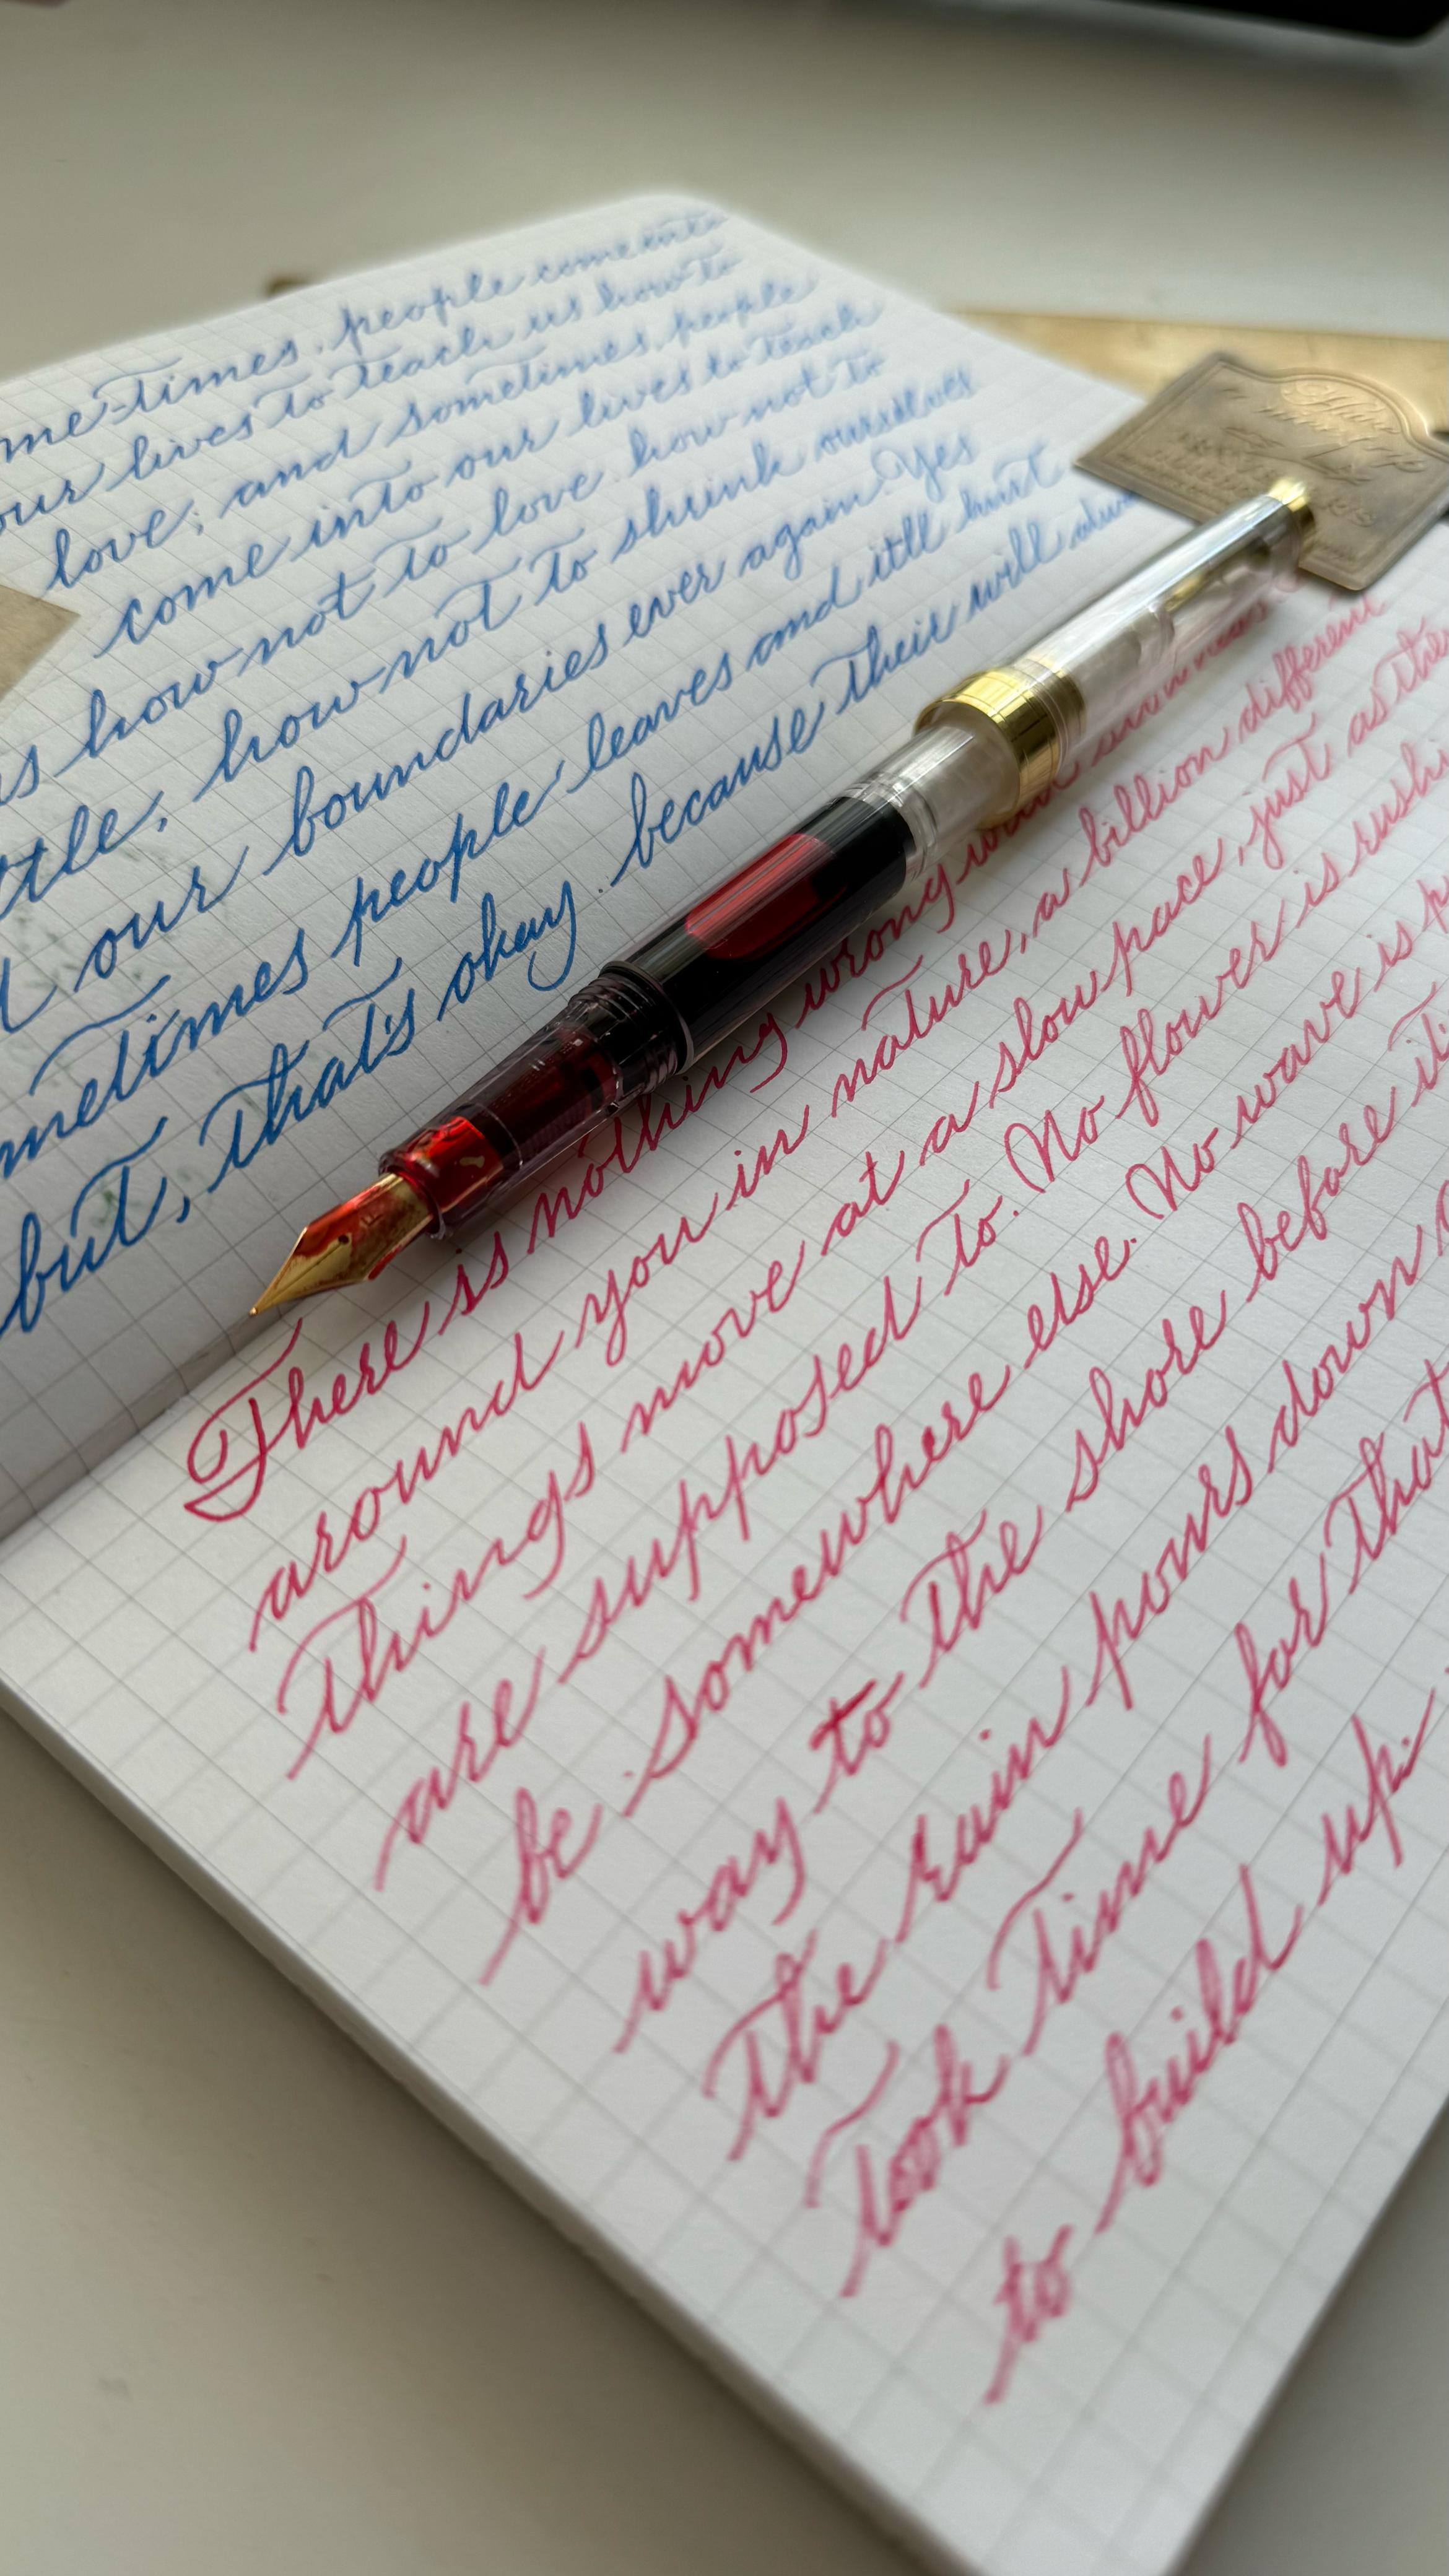 me-times. people come into
our lives to teach us how to
love; and sometimes people
come into our lives to teach
s how not to love. how not to
ttle, how not to shrink ourselves
our boundaries ever again. Yes
metimes people leaves and it'll hurt
but, that's okay. because their will
There is nothing wrong
around you in nature, a billion different
Things move at a slow pace, just as the
are supposed to. No flower is rushi
be somewhere else. No wave is p
way to the shore before it
the rain pours down
took time for that
to build up.